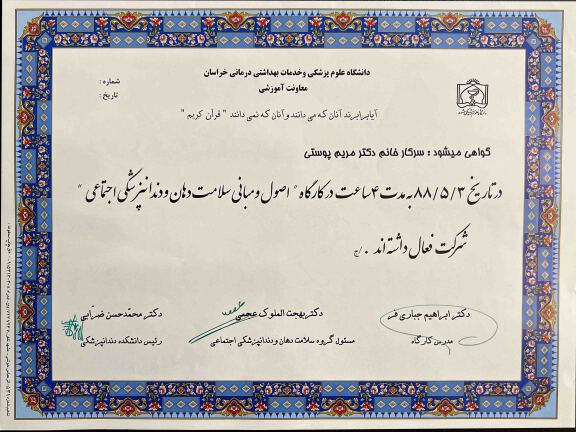 دانشگاه علوم پزشکی وخدمات بهداشتی درمانی خراسان
معاونت آموزشی
شماره :
تاریخ :
آیا برابرند آنان که می دانند و آنان که نمی دانند " قرآن کریم "
گواهی میشود : سرکار خانم دکتر مریم پوستی
در تاریخ ۸۸/۵/۳ به مدت ۴ ساعت در کارگاه " اصول و مبانی سلامت دهان و دندانپزشکی اجتماعی "
شرکت فعال داشته اند . /ج
دکتر ابراهیم جباری فر
دکتر بهجت الملوک عجمی
دکتر محمدحسن ضرابی
مدرس کارگاه
مسئول گروه سلامت دهان و دندانپزشکی اجتماعی
رئیس دانشکده دندانپزشکی